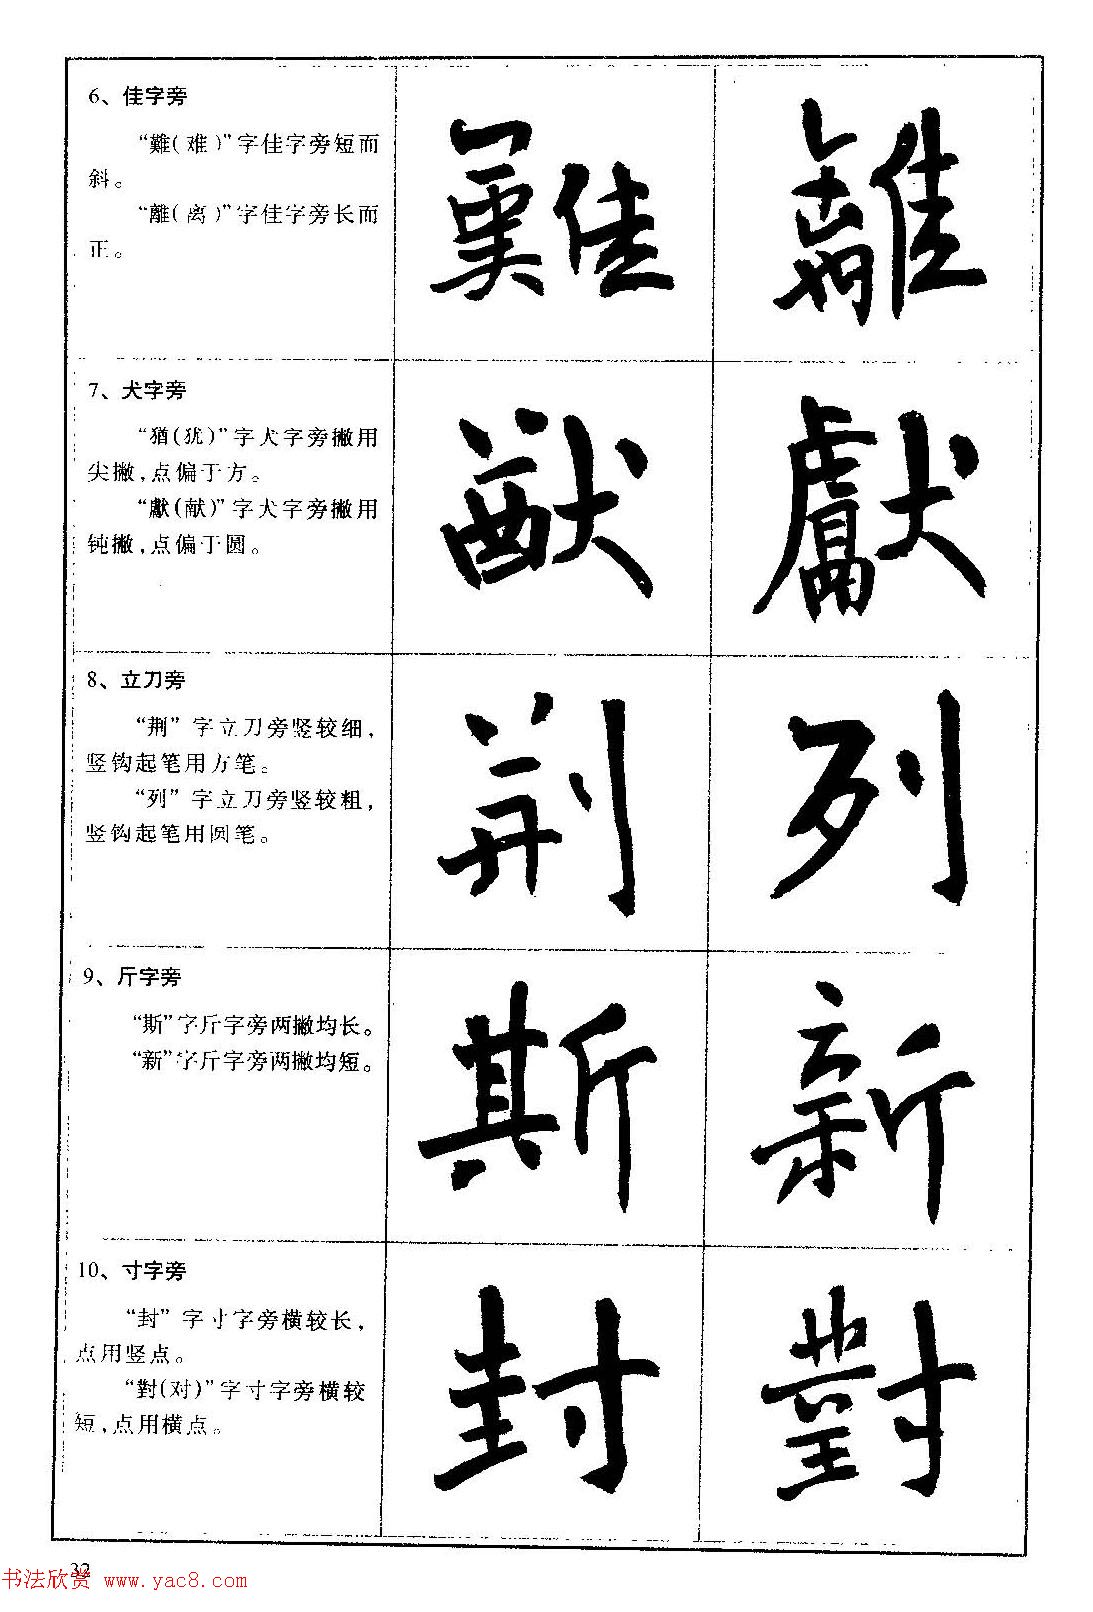 6、佳字旁
“難(难)”字佳字旁短而
斜。
“離(离)”字佳字旁长而
正。
難 離
7、犬字旁
“猶(犹)”字犬字旁撇用
尖撇,点偏于方。
“獻(献)”字犬字旁撇用
钝撇,点偏于圆。
猷 獻
8、立刀旁
“荆”字立刀旁竖较细,
竖钩起笔用方笔。
“列”字立刀旁竖较粗,
竖钩起笔用圆笔。
荆 列
9、斤字旁
“斯”字斤字旁两撇均长。
“新”字斤字旁两撇均短。
斯 新
10、寸字旁
“封”字寸字旁横较长,
点用竖点。
“對(对)”字寸字旁横较
短,点用横点。
封 對
32
书法欣赏 www.yac8.com